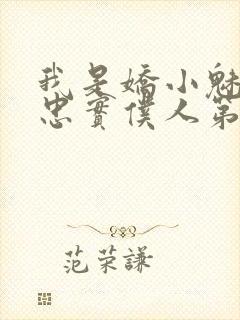 我是嬌小魅
忠實僕人第
范荣謙